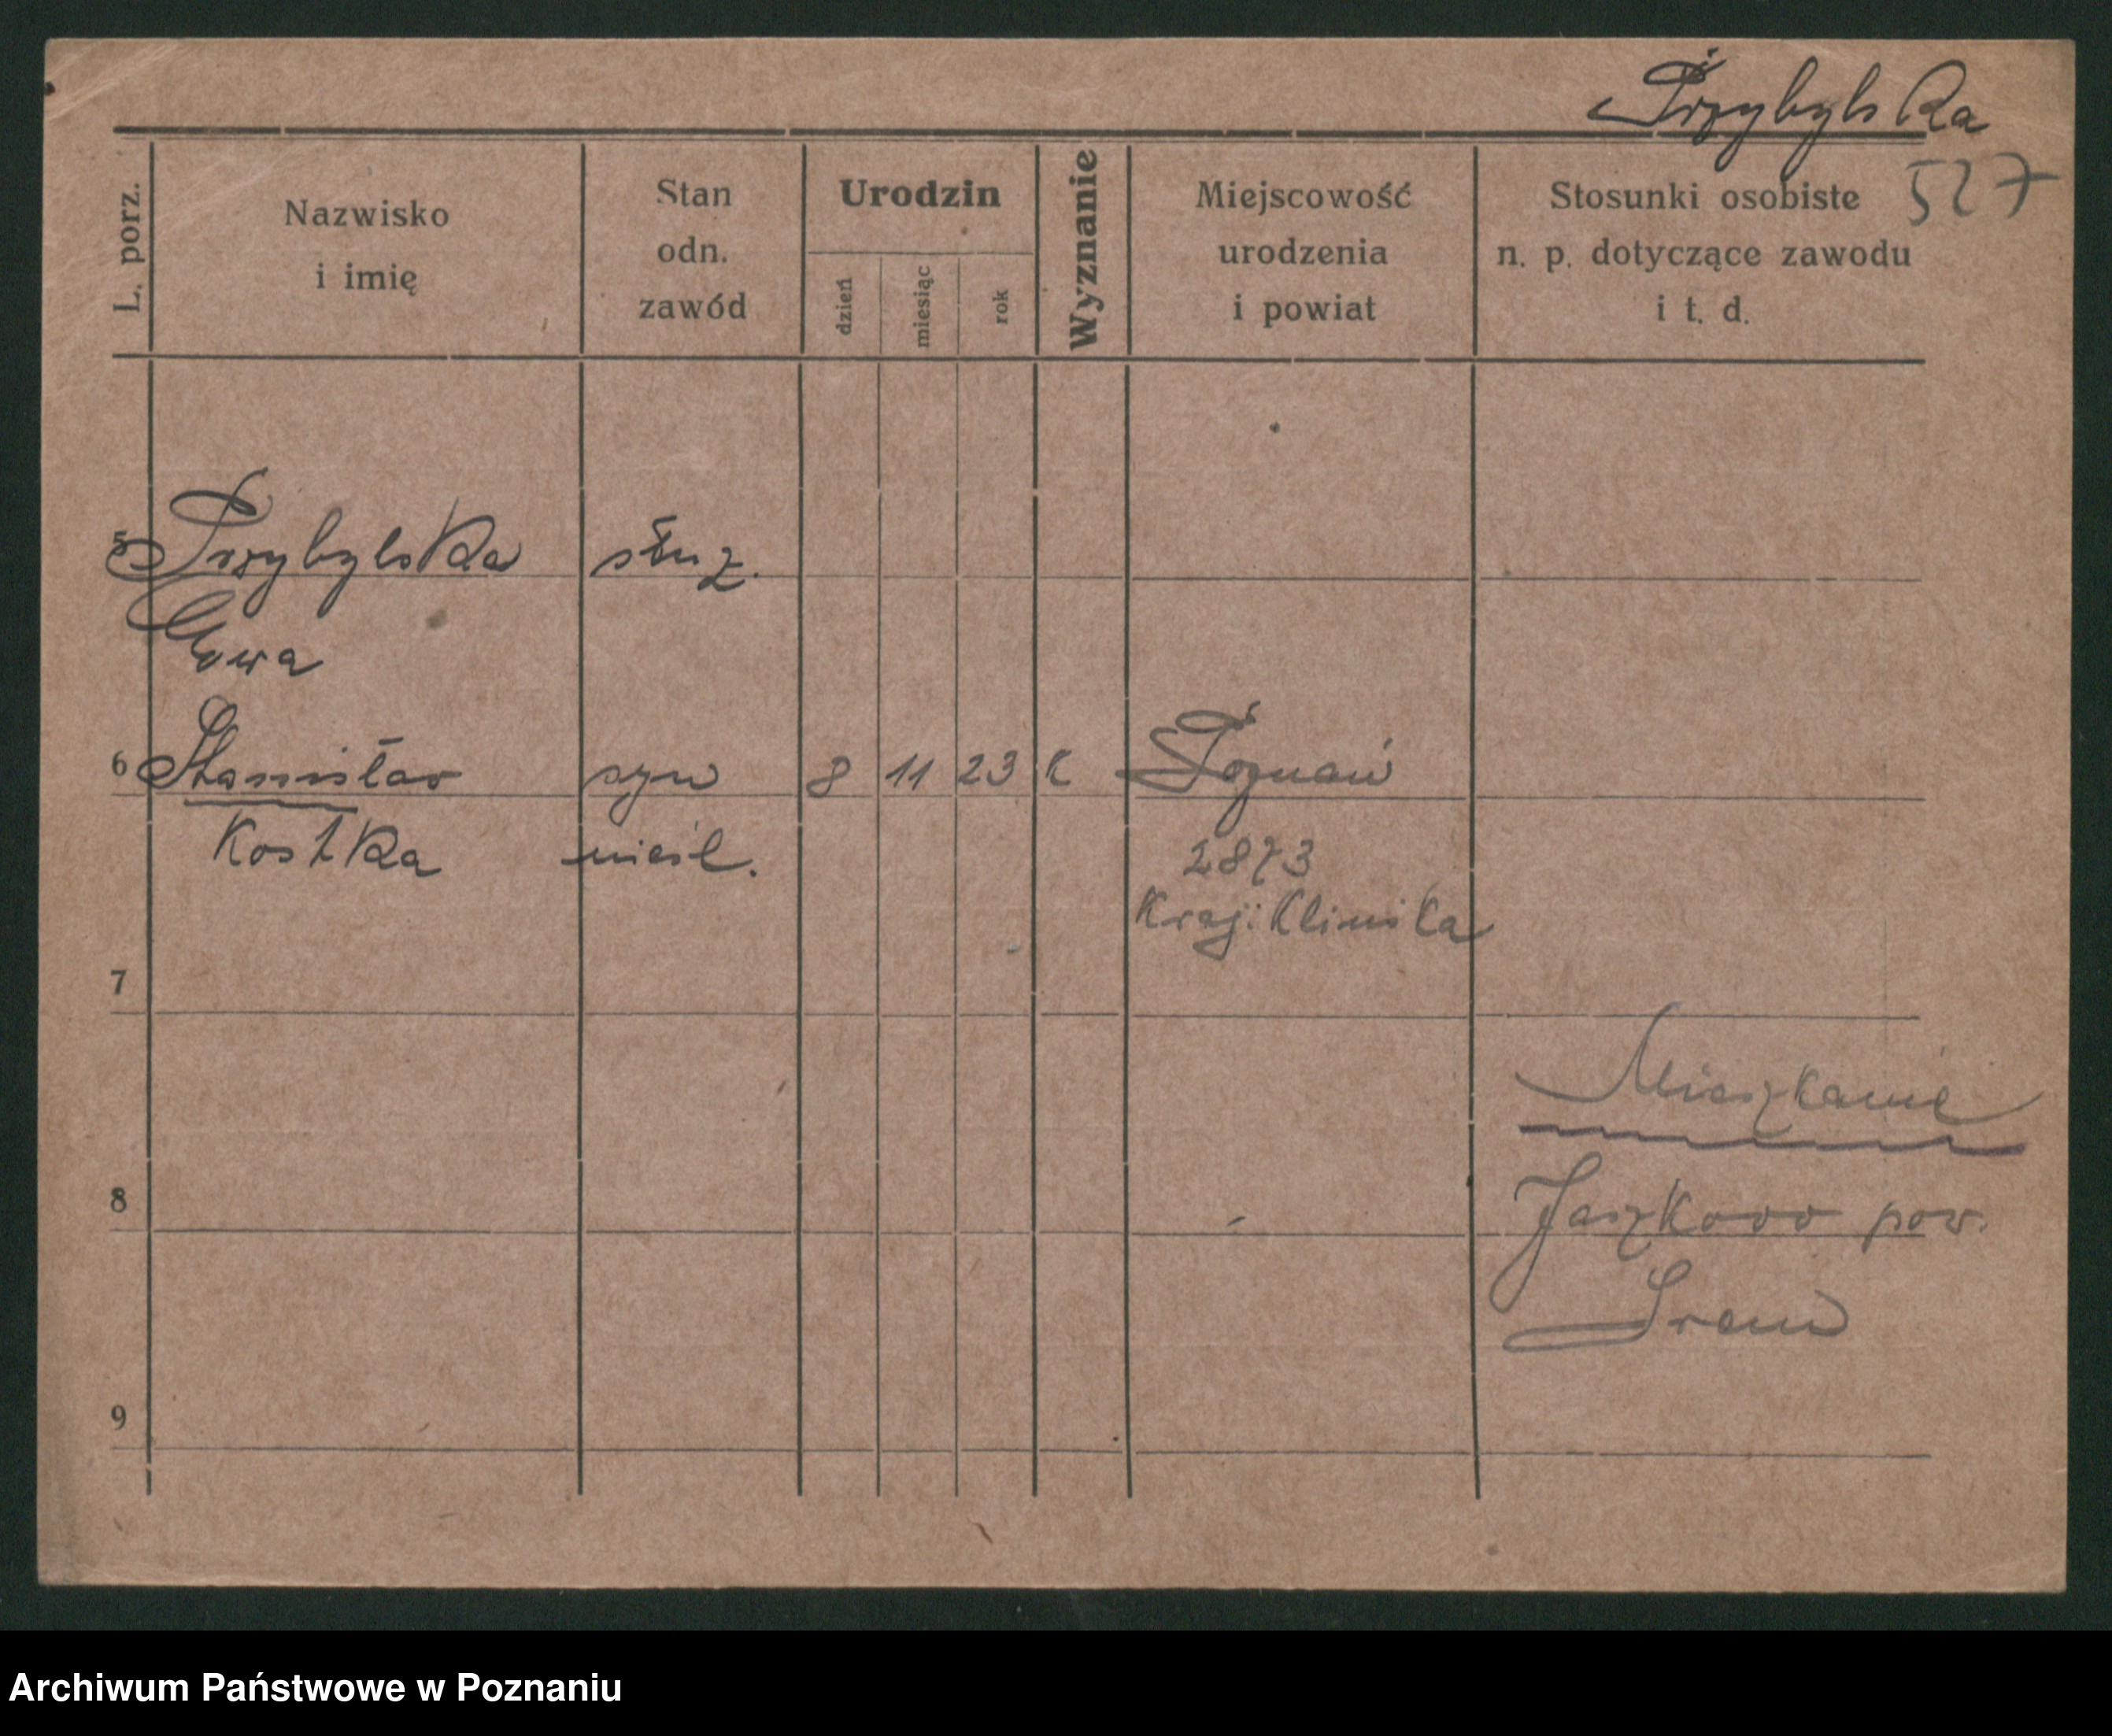 Przybylska
527
L. porz.
Nazwisko
i imię
Stan
odn.
zawód
Urodzin
dzień
miesiąc
rok
Wyznanie
Miejscowość
urodzenia
i powiat
Stosunki osobiste
n. p. dotyczące zawodu
i t. d.
5 Przybylska służ.
Ewa
6 Stanisław syn 8 11 23 k Poznań
Kostka nieśl. 2873
Kraj: Klinika
7
Mieszkanie
8 Jaszkowo pow.
Śrem
9
Archiwum Państwowe w Poznaniu